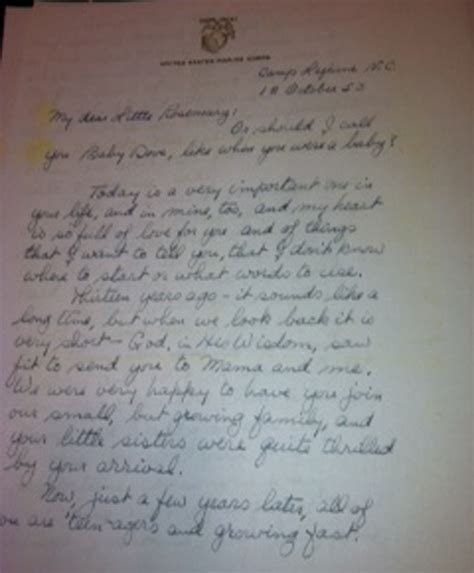 UNITED STATES MARINE CORPS
Camp Lejeune N.C.
18 October 53
My dear Little Rosemary:
Or should I call
you Baby Dove, like when you were a baby?
Today is a very important one in
your life, and in mine, too, and my heart
is so full of love for you and of things
that I want to tell you, that I don't know
where to start or what words to use.
Thirteen years ago - it sounds like a
long time, but when we look back it is
very short - God, in His Wisdom, saw
fit to send you to Mama and me.
We were very happy to have you join
our small, but growing family, and
your little sisters were quite thrilled
by your arrival.
Now, just a few years later, all of
you are 'teen-agers and growing fast.